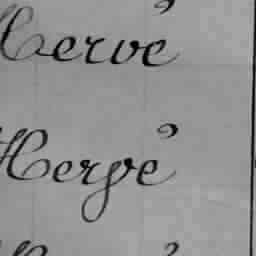 Hervé
Hergé